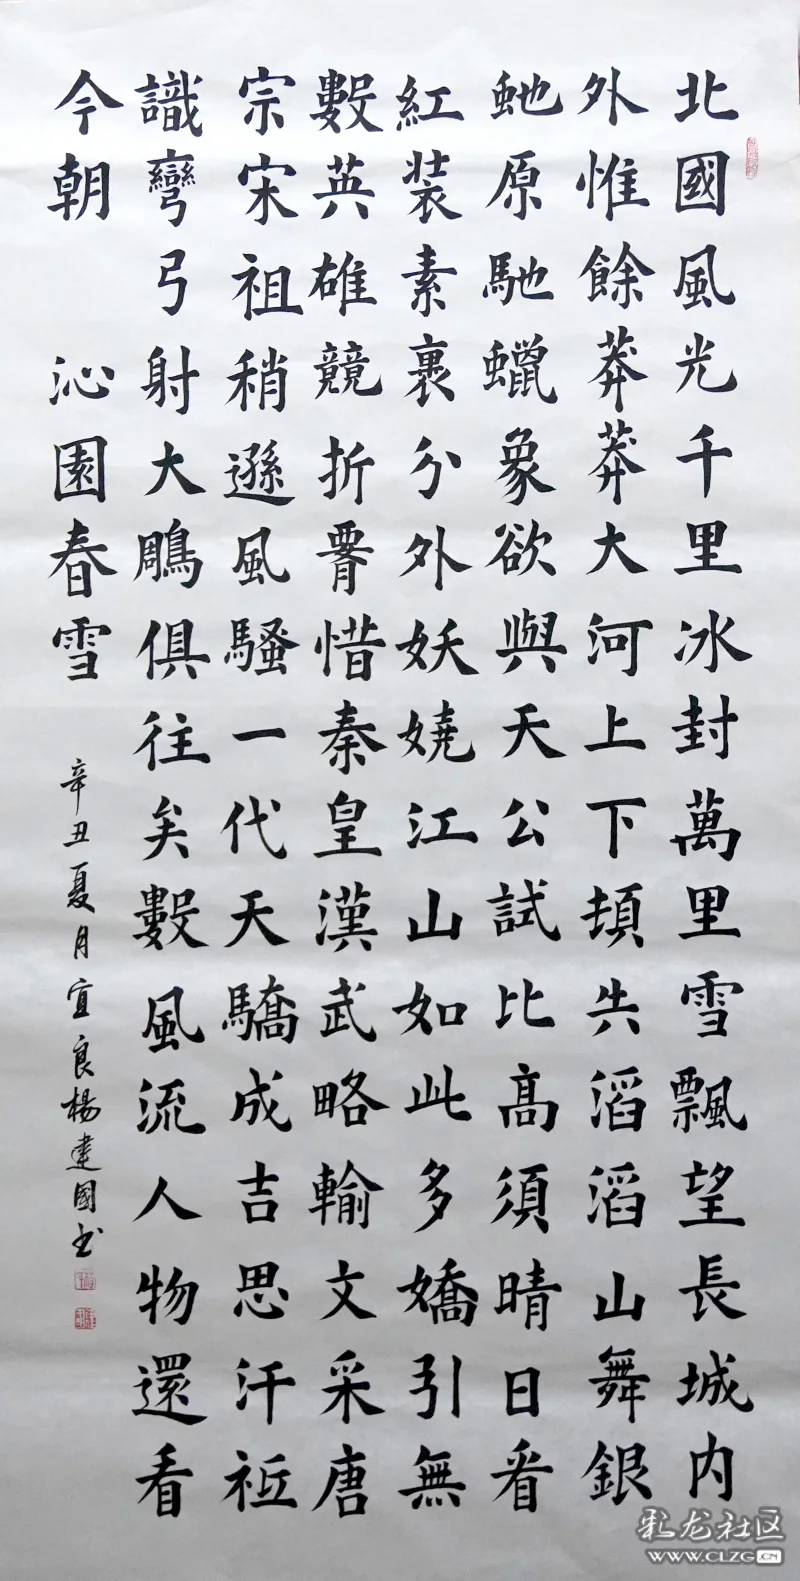 北國風光千里冰封萬里雪飄望長城内
外惟餘莽莽大河上下頓失滔滔山舞銀
虵原馳蠟象欲與天公試比高須晴日看
紅装素裹分外妖嬈江山如此多嬌引無
數英雄競折腰惜秦皇漢武略輸文采唐
宗宋祖稍遜風騷一代天驕成吉思汗祗
識彎弓射大鵰俱往矣數風流人物還看
今朝 沁園春雪 辛丑夏月宜良楊建國书
彩龙社区
WWW.CLZG.CN